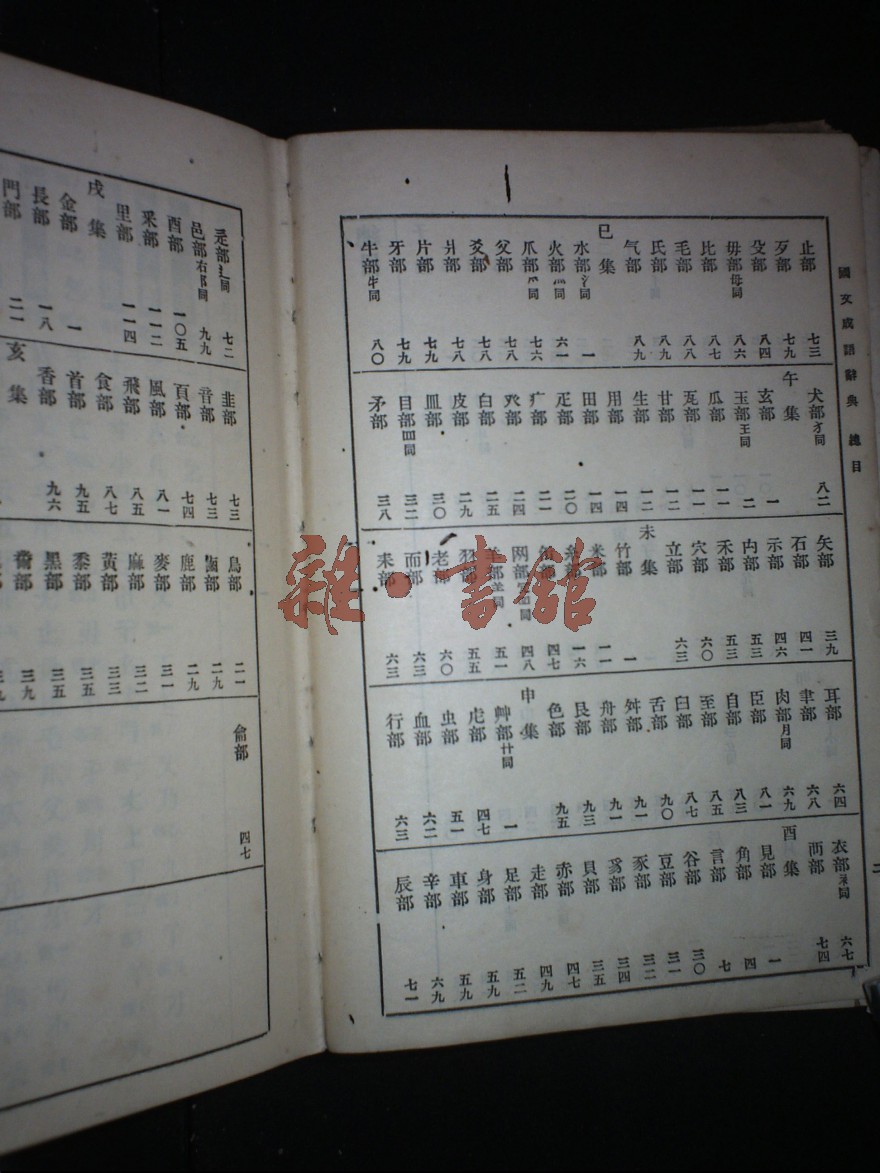 國文成語辭典 總目
二
止部 七三
歹部 七九
殳部 八四
毋部母同 八六
比部 八七
毛部 八八
氏部 八九
气部 八九
巳集
水部氵同 一
火部灬同 六一
爪部爫同 七六
父部 七八
爻部 七八
爿部 七八
片部 七九
牙部 七九
牛部牜同 八〇
犬部犭同 八二
午集
玄部 一
玉部王同 二
瓜部 一一
瓦部 一一
甘部 一二
生部 一二
用部 一四
田部 一四
疋部 二〇
疒部 二一
癶部 二四
白部 二五
皮部 二九
皿部 三〇
目部罒同 三二
矛部 三八
矢部 三九
石部 四一
示部 四六
禸部 五三
禾部 五三
穴部 六〇
立部 六三
未集
竹部 一
米部 一一
糸部 一六
缶部 四七
网部 四八
羊部 五一
羽部 五五
老部 六〇
而部 六三
耒部 六三
耳部 六四
聿部 六八
肉部月同 六九
臣部 八一
自部 八三
至部 八五
臼部 八七
舌部 九〇
舛部 九一
舟部 九一
艮部 九三
色部 九五
申集
艸部艹同 一
虍部 四七
虫部 五一
血部 六二
行部 六三
衣部衤同 六七
襾部 七四
酉集
見部 一
角部 四
言部 七
谷部 三〇
豆部 三一
豕部 三二
豸部 三四
貝部 三五
赤部 四七
走部 四九
足部 五二
身部 五九
車部 五九
辛部 六九
辰部 七一
辵部辶同 七二
邑部右阝同 九九
酉部 一〇五
釆部 一一二
里部 一一四
戌集
金部 一
長部 一八
門部 二一
韭部 七三
音部 七三
頁部 七四
風部 八一
飛部 八五
食部 八七
首部 九五
香部 九六
亥集
鳥部 二一
鹵部 二九
鹿部 二九
麥部 三一
麻部 三二
黃部 三三
黍部 三五
黑部 三五
黹部 三九
龠部 四七
雜·書館